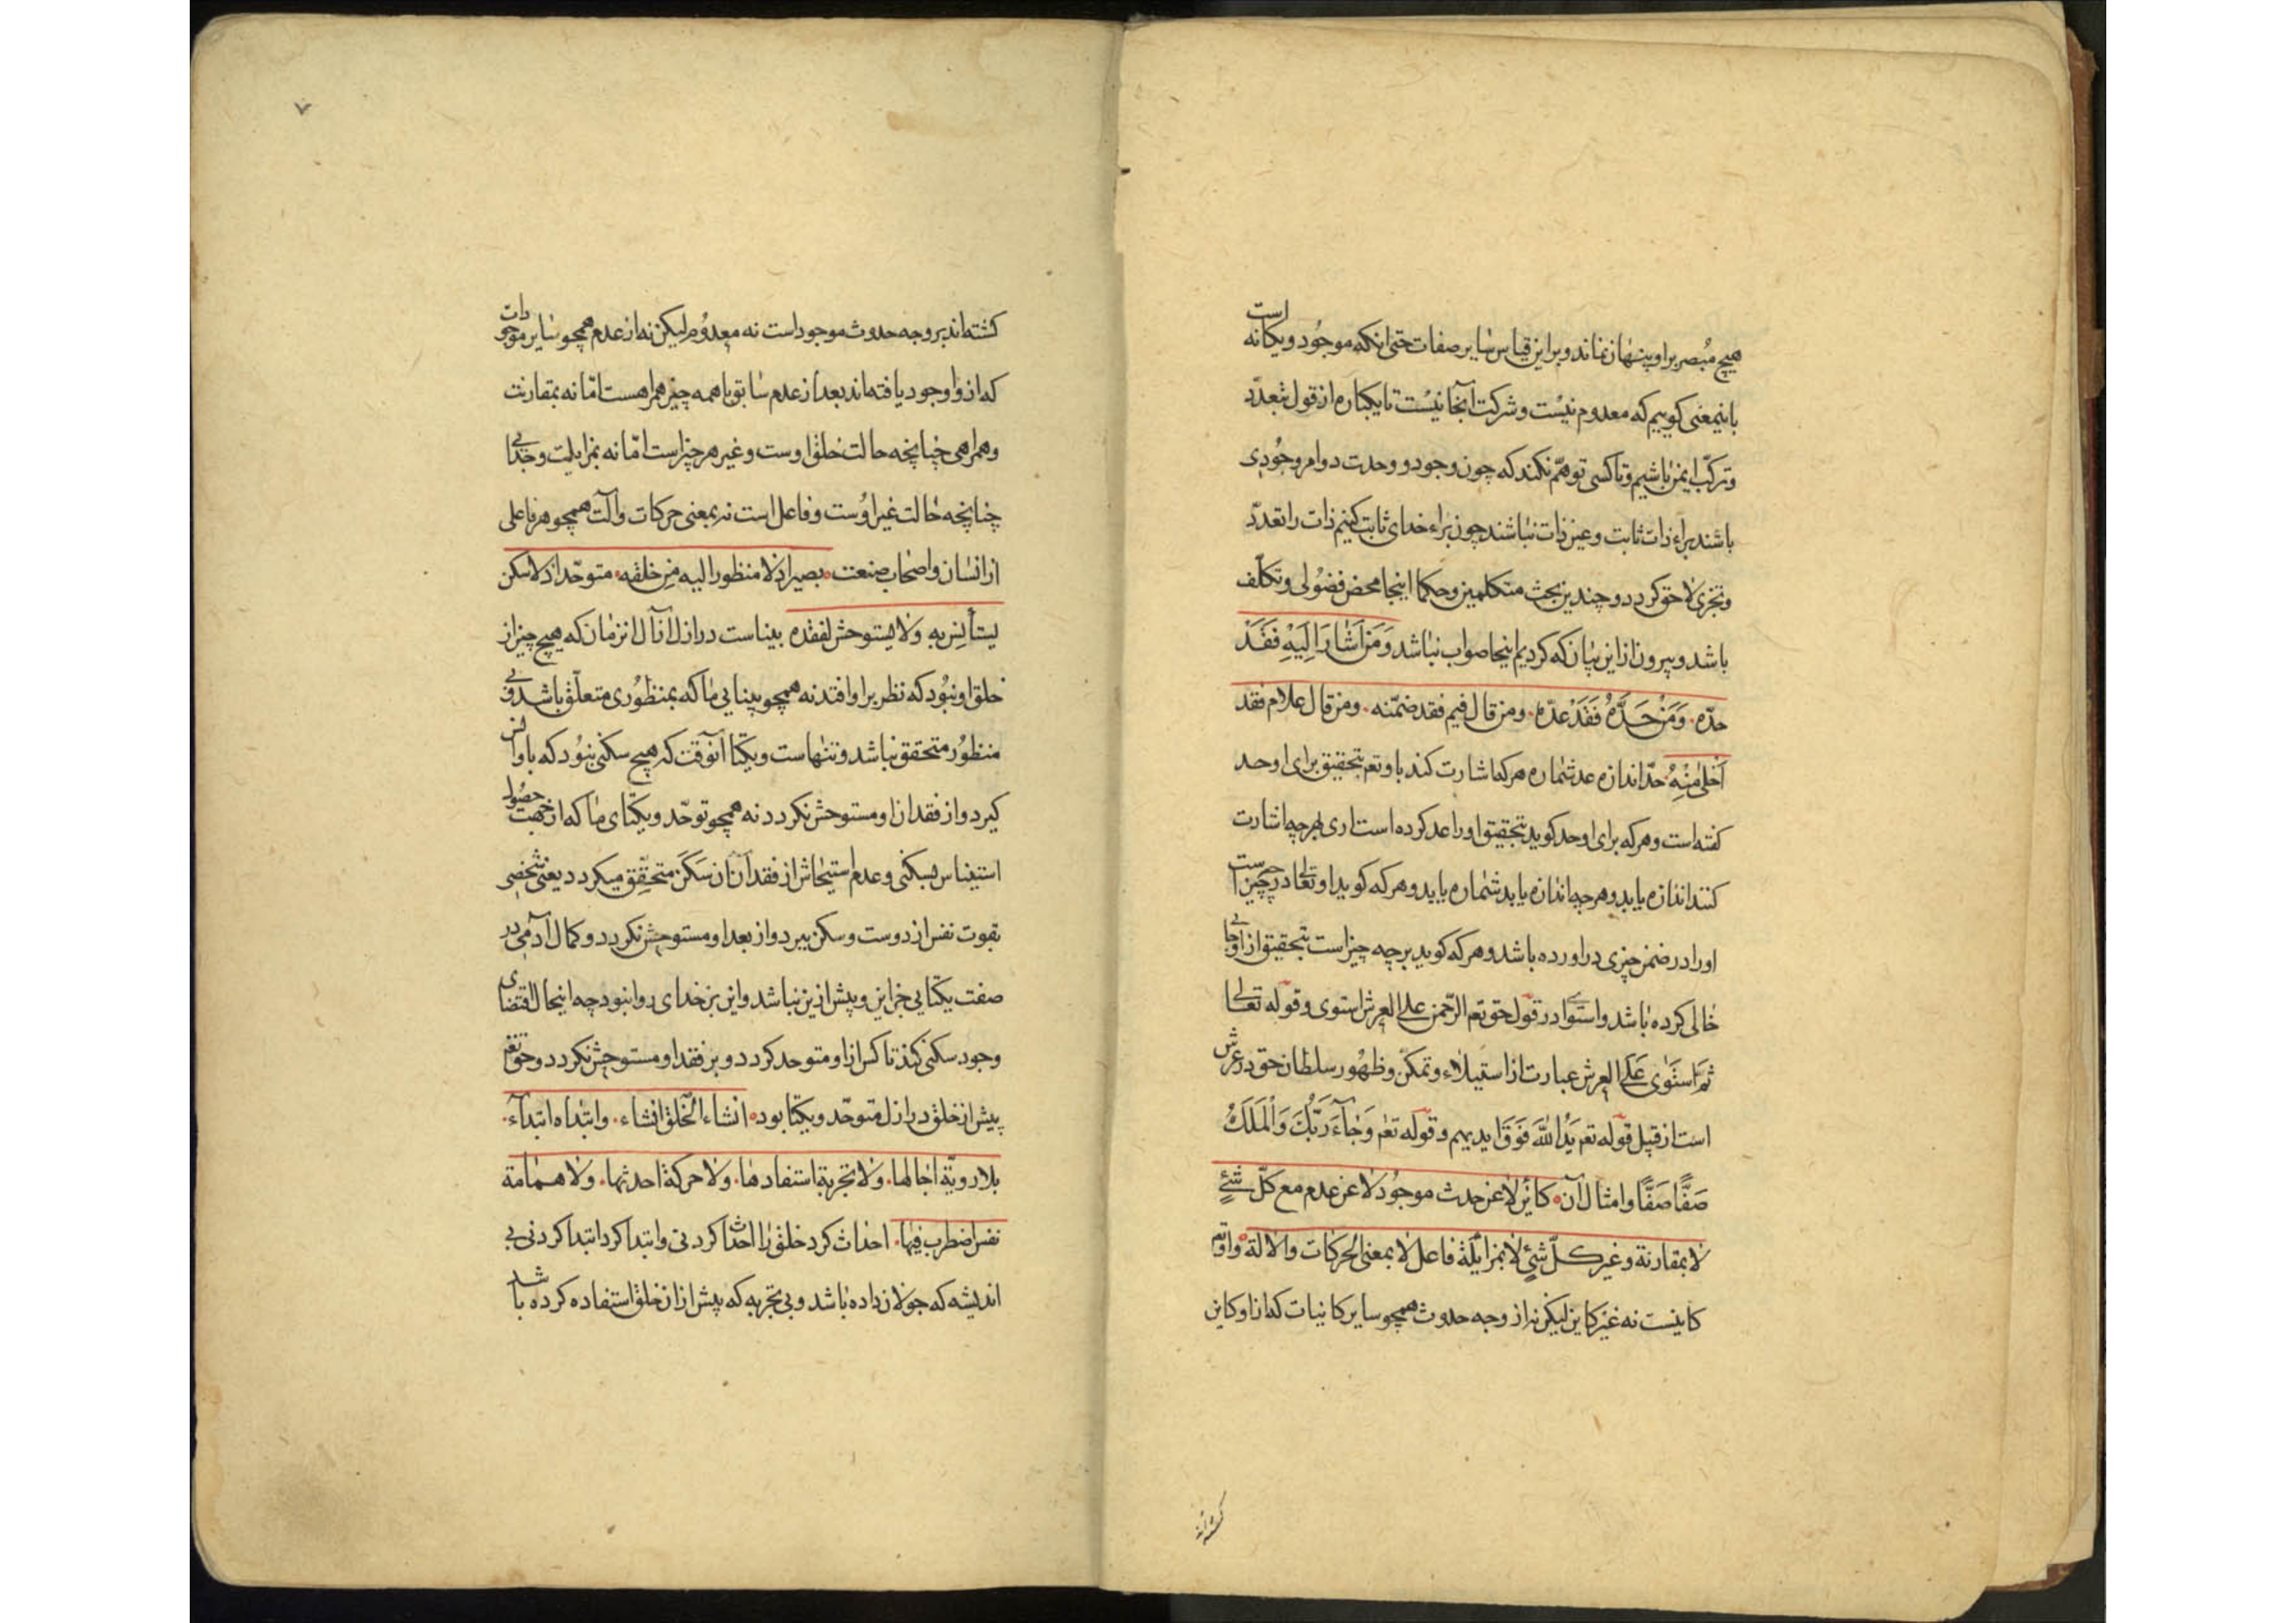 هیچ مُبصر براو پنهان نماند و براین قیاس سایر صفات حتی انکه موجُود و یکانه است
باینمعنی کوییم که معدوم نیست و شرکت آنجا نیست تا یکباره از قول بتعدّد
و ترکّب ایمن باشیم و تا کسی توهّم نکند که چون وجود و وحدت دو امر وجُودی
باشند براء ذات ثابت و عین ذات نباشند چون براء خدای ثابت کنیم ذات را تعدّد
و تجزی لاحق کردد و چندین بحث متکلمین و حکما اینجا محض فضُولی و تکلّف
باشد و بیرون از این بیان که کردیم اینجا صواب نباشد وَمَن اَشارَ اِلَیْهِ فَقَدْ
حدّه. وَمَنْ حَدَّهُ فَقَدْ عدّه. ومن قال فیم فقد ضمّنه. ومن قال علام فقد
اَخلٰی مِنْهُ حدّ اندازه عد شماره هر که اشارت کند باو تعم بتحقیق برای او حد
کفته است و هر که برای او حد کوید بتحقیق او را عد کرده است اری بهر چه اشارت
کنند اندازه یابد و هر چه اندازه یابد شماره یابد و هر که کوید او تعالی در چه چیز است
اورا در ضمن چیزی دراورده باشد و هر که کوید بر چه چیز است بتحقیق از او جائی
خالی کرده باشد و استوا در قول حق تعم الرّحمن علی العرش استوی و قوله تعالی
ثُمَ اسْتَوٰی عَلَی العرش عبارت از استیلاء و تمکّن و ظهُور سلطان حق در عرش
است از قبیل قوله تعم یَدُ اللّٰهِ فَوَقَ ایدیهم و قوله تعم وَجٰآءَ رَبُّكَ وَالْمَلَكُ
صَفًّا صَفًّا و امثال آن کائن لا عن حدث موجُود لا عن عدم مع کلّ شئٍ
لا بمقارنة و غیر کلّ شئٍ لا بمزایلة فاعل لا بمعنی الحرکات والالة و اوتم
کاینست نه غیر کاین لیکن نه از وجه حدوث همچو سایر کاینات که از او کاین
کشته اند
٧
کشته اند بر وجه حدوث موجود است نه معدُوم لیکن نه از عدم همچو سایر موجودات
که از او وجود یافته اند بعد از عدم سابق با همه چیز همراهست امّا نه بمقارنت
و همراهی چنانچه حالت خلق اوست و غیر هر چیز است امّا نه بمزایلت و جدائی
چنانچه حالت غیر اوُست و فاعل است نه بمعنی حرکات و آلت همچو هر فاعلی
از انسان و اصحاب صنعت بصیر اذ لا منظور الیه مِن خلقه. متوحّد اذ لا سکن
یستأنس به ولا یستوحش لفقده بیناست در ازل آنآل انزمان که هیچ چیز از
خلق او نبُود که نظر بر او افتد نه همچو بینایی ما که بمنظُوری متعلّق باشد و بی
منظُور متحقق نباشد و تنهاست و یکتا آنوقت که هیچ سکنی نبُود که باو انس
کیرد و از فقدان او مستوحش نکردد نه همچو توحّد و یکتای ما که از جهت حصُول
استیناس بسکنی و عدم استیحاش از فقدان ان سَکَن متحقّق میکردد یعنی شخصی
بقوت نفس از دوست و سکن ببرد و از بعد او مستوحش نکردد و کمال آدمی در
صفت یکتایی جز این و بیش ازین نباشد و این بر خدای روا نبود چه اینحال اقتضای
وجود سکنی کند تا کس از او متوحد کردد و بر فقد او مستوحش نکردد و حق تعم
پیش از خلق در ازل متوحّد و یکتا بود انشاء الخلق انشاء. وابتداه ابتدآء.
بلا رویّة اجالها. ولا تجربة استفادها. ولا حرکة احدثها. ولا همامة
نفس اضطرب فیها. احداث کرد خلق را احداث کردنی و ابتدا کرد ابتدا کردنی بی
اندیشه که جولان داده باشد و بی تجربه که پیش از ان خلق استفاده کرده باشد